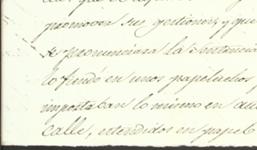 promover sus gestiones, y que
se pronunciara la sentencia
lo fundó en unos papeluchos
importaban lo mismo en
calle, estendidos en papel